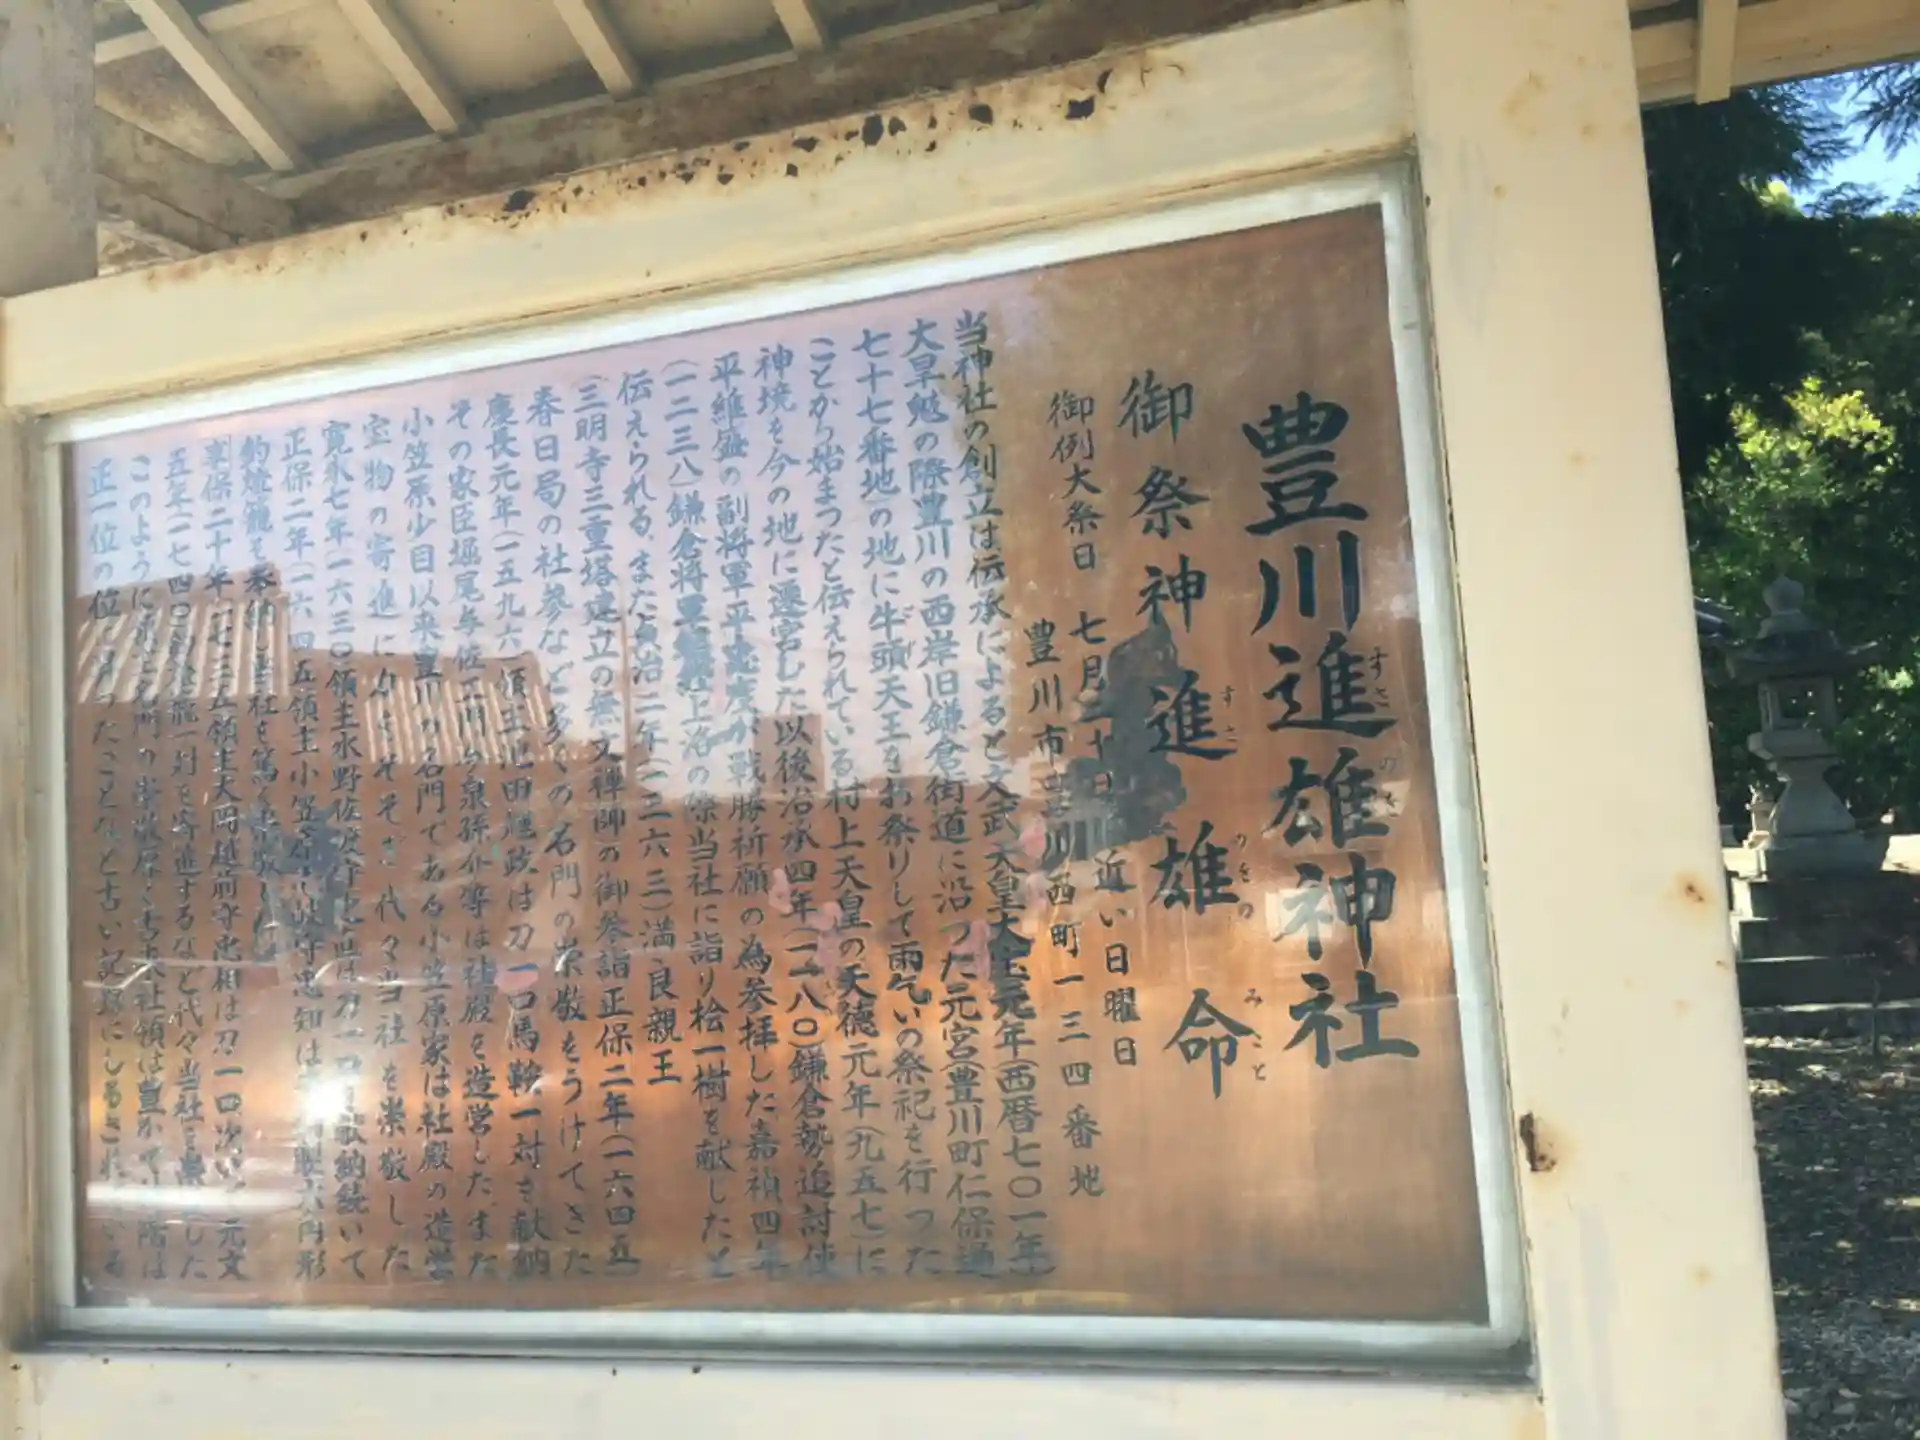 豊川進雄神社
すさのを
御祭神 進雄命
すさのをのみこと
御例大祭日 七月二十日に近い日曜日
豊川市豊川西町一三四番地
当神社の創立は伝承によると文武天皇大宝元年(西暦七〇一年)
大旱魃の際豊川の西岸旧鎌倉街道に沿つた元宮(豊川町仁保通
七十七番地)の地に牛頭天王をお祭りして雨乞いの祭祀を行つた
ことから始まつたと伝えられている村上天皇の天徳元年(九五七)に
神境を今の地に遷宮した以後治承四年(一一八〇)鎌倉勢追討使
平維盛の副将軍平忠度が戦勝祈願の為参拝した嘉禎四年
(一二三八)鎌倉将軍 上洛の際当社に詣り桧一樹を献したと
伝えられる、また 治二年(一三六三)満良親王
(三明寺三重塔建立の無文禅師)の御参詣正保二年(一六四五)
春日局の社参など多くの名門の崇敬をうけてきた
慶長元年(一五九六)領主池田輝政は刀一口馬鞍一対を献納
その家臣堀尾与佐エ門 今泉孫介等は社殿を造営した、また
小笠原少目以来豊川の名門である小笠原家は社殿の造営
宝物の寄進に力をそそぎ代々当社を崇敬した
寛永七年(一六三〇)領主水野佐渡守 は刀一口 献納続いて
正保二年(一六四五)領主小笠原 守忠知は 六角形
釣燈籠を奉納し当社を篤く崇敬した
享保二十年(一七三五)領主大岡越前守忠相は刀一口次いで元文
五年(一七四〇) 燈籠一対を寄進するなど代々当社を崇 した
このように 名門の崇敬厚く 社領は豊かで 階は
正一位の位 あつたことなど古い記録にしるされている